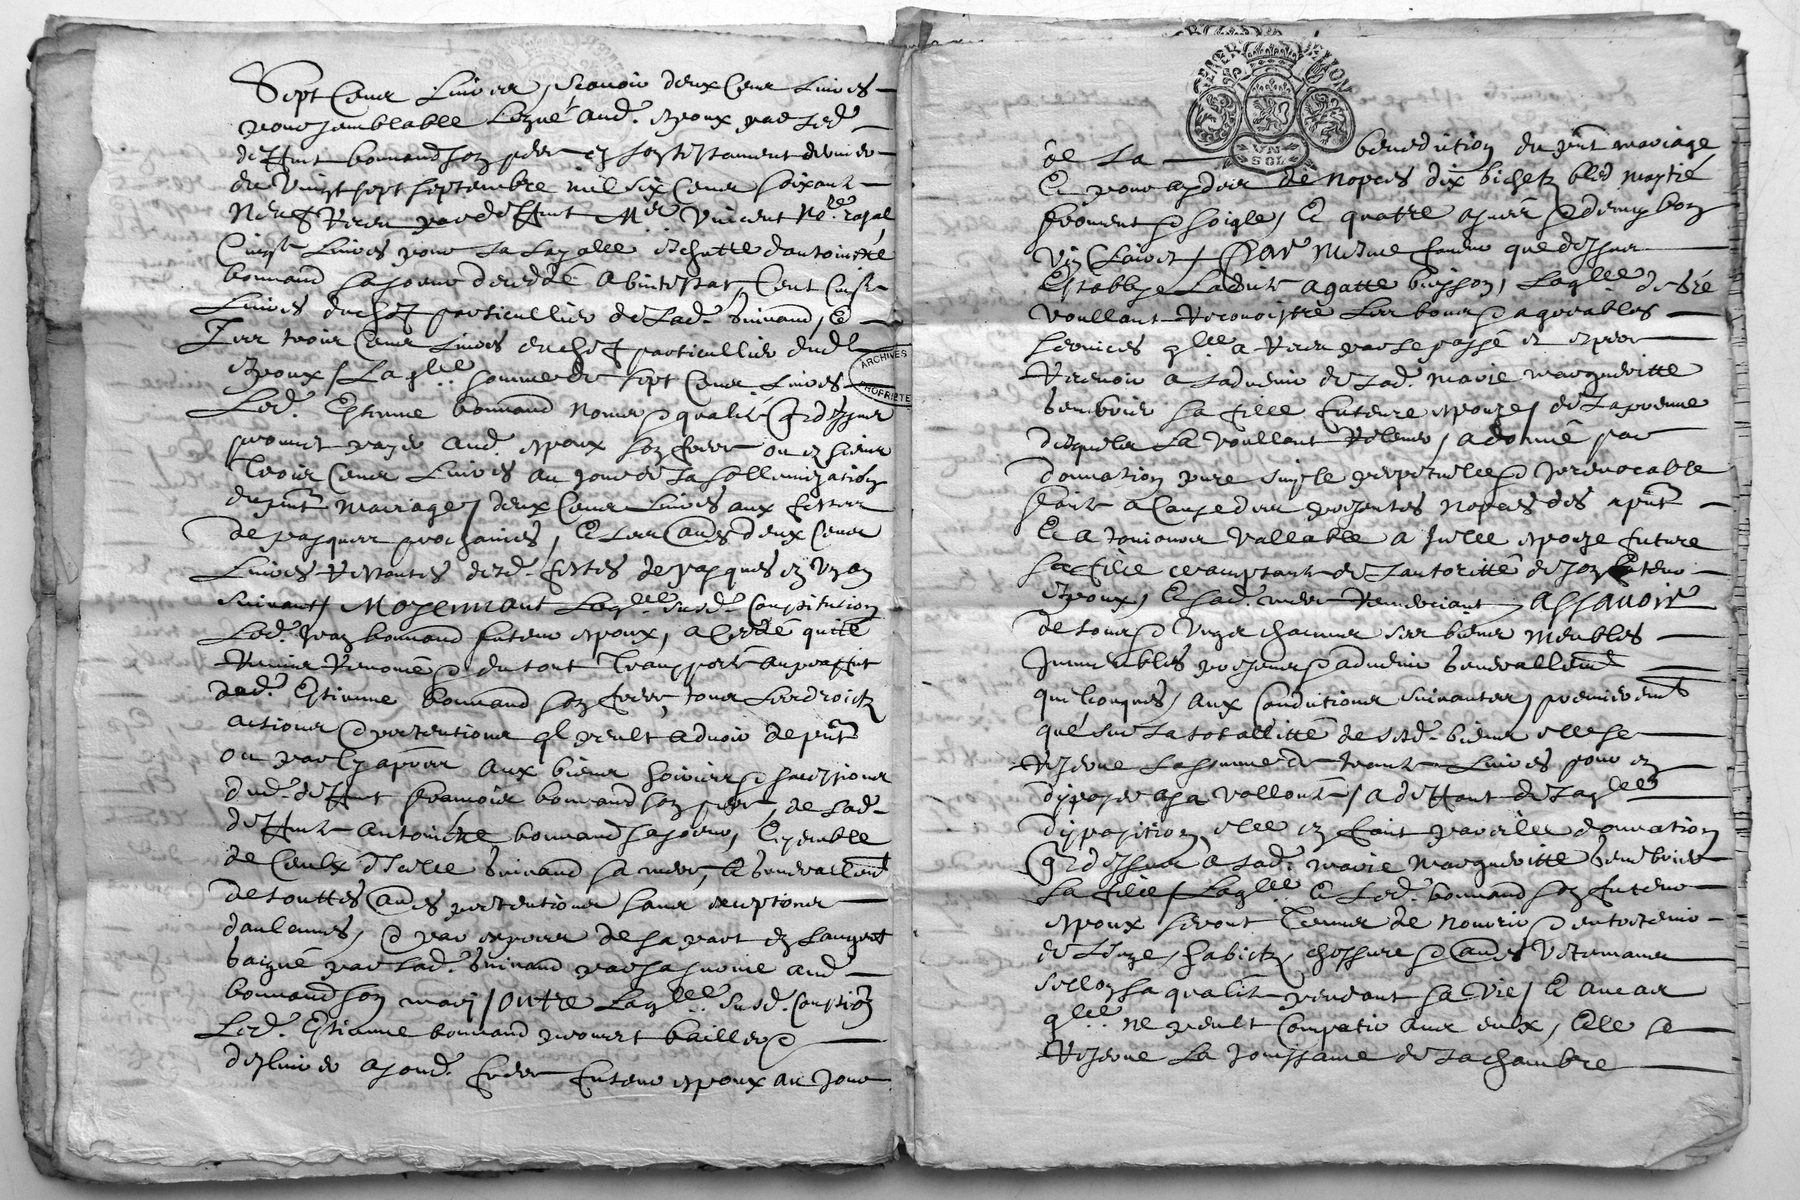 Sept Cens Livres, scavoir deux Cens Livres
pour semblable Legué aud. espoux par led.
deffunt bonnand son pere en son testament dernier
du vingt sept septembre mil six Cens soixante
neuf Receu par deffunt Mre Vincent no.re royal,
Cinqte Livres pour la Legalle escheutte d'antoinette
bonnand sa soeur decedée abintestat, Cent Cinqte
Livres du chef particullier de lad. Brinand, Et
Les trois Cens Livres du chef particullier dud.
espoux, Laqlle somme de sept Cens Livres
Led. Estienne bonnand nomé & qualité Cy dessus
promet payer aud. espoux son frere ou es siens
trois Cens Livres au jour de la sollemnization
du pnt mariage, deux Cens Livres aux festes
de pasques prochaines, Et Les aues deux Cens
Livres restantes desd. festes de pasques en un an
suivant, Moyennant Laqlle susd. Constitution
Led. Jean bonnand futeur espoux, a Cedé quité
remis renoncé & du tout transporté au proffit
dud. Estienne bonnand son frere, tous Les droictz
actions & pretentions ql peult advoir de pnt
ou par Cy apres aux biens hoiries & successions
dud. deffunt François bonnand son pere, de lad.
deffunte antoinette bonnand sa soeur, Ensemble
de Ceulx d'Icelle Brinand sa mere, & generallemt
de touttes aues pretentions sans exceptions
d'aulcunes, & par expres de sa part en L'augmt
gaigné par lad. Brinand par sa survie aud.
bonnand son mary, Outre Laqlle susd. Constion
Led. Estienne bonnand promet bailler &
deslivrer a sond. frere futeur espoux au jour
GENER LYON
UN SOL
ARCHIVES
PROPRIETE
de La benediction du pnt mariage
Et pour ayder de nopces dix bichetz bled moytié
froment & soigle, Et quatre asnées & demy bon
vin Clairet, Par mesme forme que dessus
Establye Laditte agatte buisson, Laqlle de gré
voullant reconoistre Les bons & agreables
services qlle a receu par le passé et espere
recevoir a l'advenir de lad. marie margueritte
sa fille future espouze, de La preuve
desquels La voullant relever, a donné par
donnation pure simple perpetuelle & Jrrevocable
faicte a Cause des presentes nopces des apnt
Et a toujours vallable a Jcelle espouze future
sa fille acceptante de L'autoritté de son futeur
espoux, & sad. mere remerciant, assavoir
de tous & ungs chacuns ses biens meubles
Jmmeubles presens & advenir generallemt
quelconques, aux Conditions suivantes, premieremt
que sur La totallitté de sesd. biens elle se
reserve La somme de trente Livres pour en
disposer a sa vollonté, a deffaut de Laqlle
disposition elle en faict pareille donnation
que dessus a lad. marie margueritte
sa fille, Laqlle Et Led. bonnand son futeur
espoux seront tenus de nourrir & entretenir
de Linge, habictz, chossure & aues vestemens
sellon sa qualité pendant sa vie, Et au cas
qlle ne peult Compatir avec eulx, Elle se
reserve La jouissance de La chambre